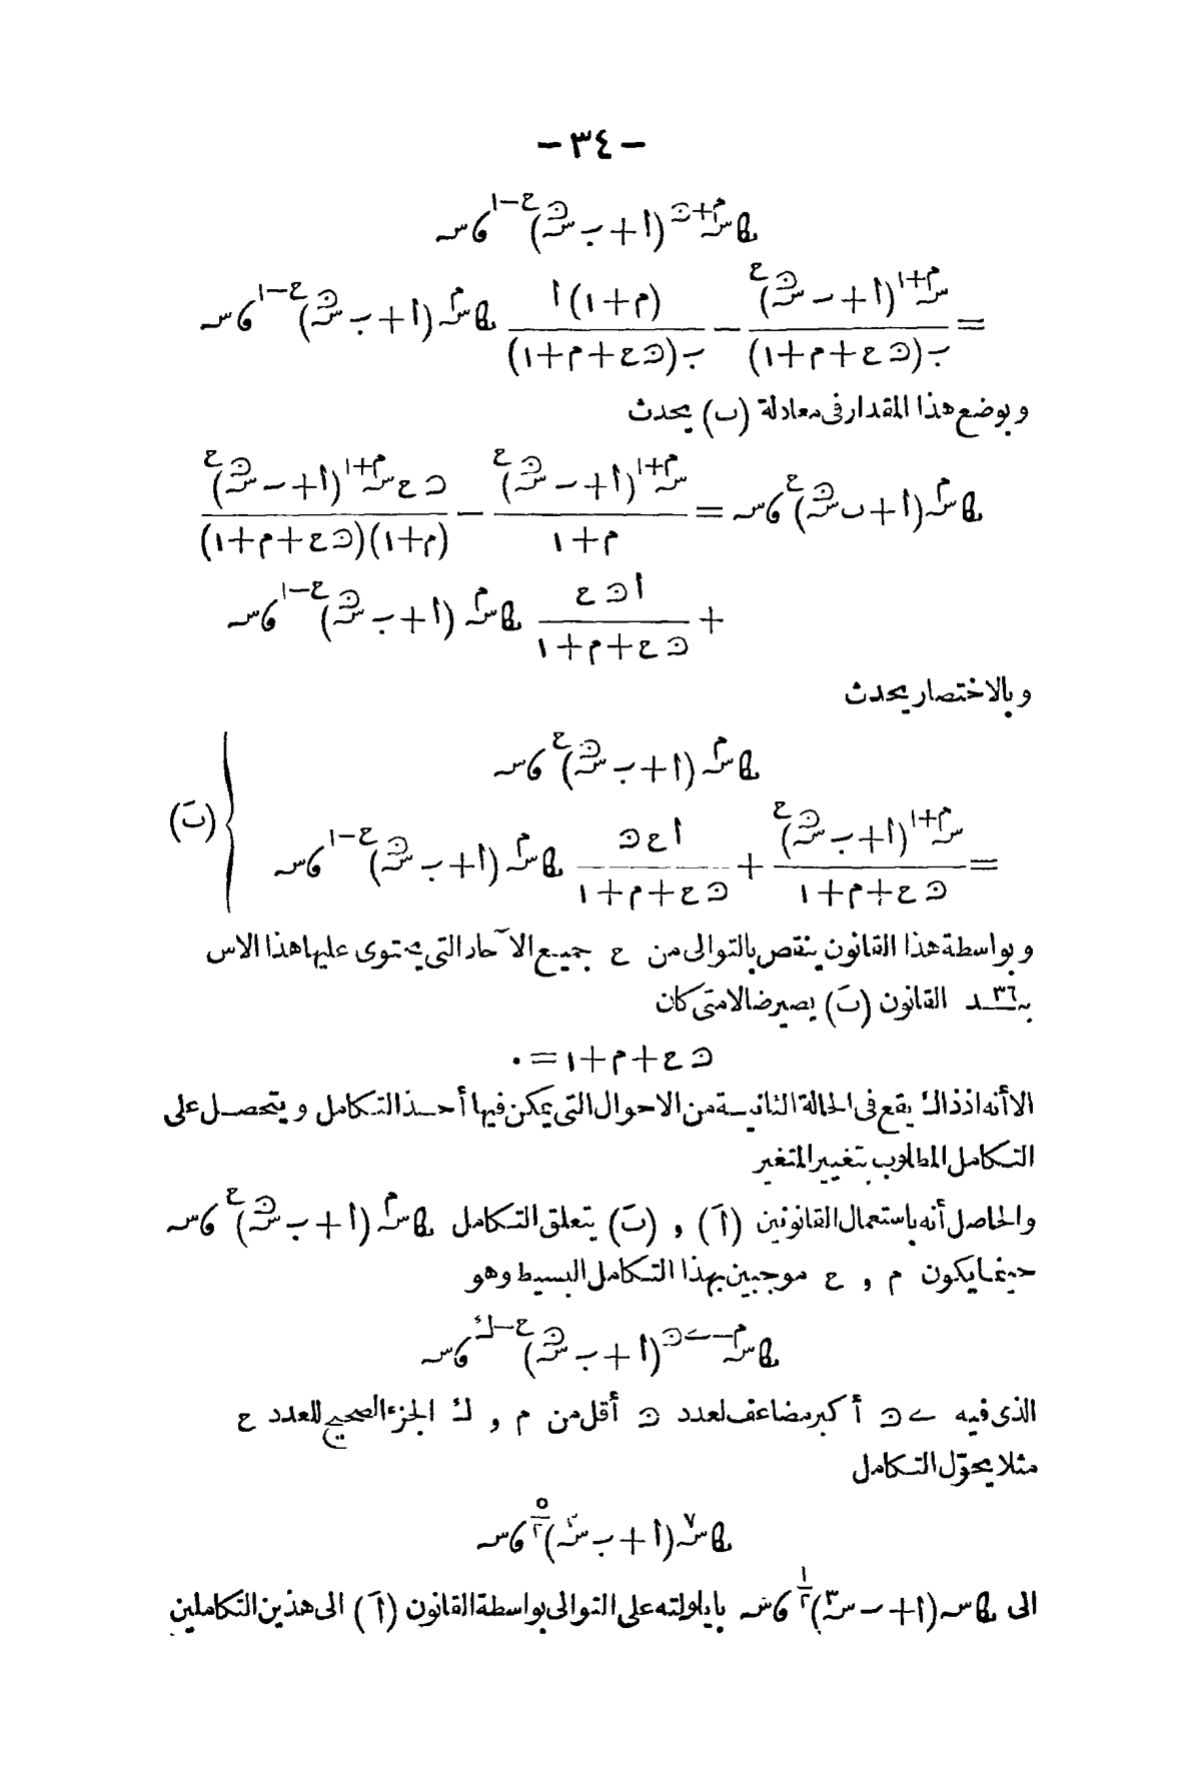 — ٣٤ —
ﻬﺎ س^(م+ں) (ا+ب س^ں)^(ع−١) ءس
= س^(م+١)(ا+ب س^ں)^ع / ب(ں ع+م+١) − (م+١)ا / ب(ں ع+م+١) ﻬﺎ س^م (ا+ب س^ں)^(ع−١) ءس
وبوضع هذا المقدار فى معادلة (ب) يحدث
ﻬﺎ س^م (ا+ب س^ں)^ع ءس = س^(م+١)(ا+ب س^ں)^ع / م+١ − ں ع س^(م+١)(ا+ب س^ں)^ع / (م+١)(ں ع+م+١)
+ ا ں ع / ں ع+م+١ ﻬﺎ س^م (ا+ب س^ں)^(ع−١) ءس
وبالاختصار يحدث
ﻬﺎ س^م (ا+ب س^ں)^ع ءس
= س^(م+١)(ا+ب س^ں)^ع / ں ع+م+١ + ا ع ں / ں ع+م+١ ﻬﺎ س^م (ا+ب س^ں)^(ع−١) ءس } (بَ)
وبواسطة هذا القانون ينقص بالتوالى من ع جميع الآحاد التى يحتوى عليها هذا الاس
بند ٣٦ القانون (بَ) يصير ضالا متى كان
ں ع+م+١=٠
الا أنه اذ ذاك يقع فى الحالة الثانية من الاحوال التى يمكن فيها أخذ التكامل ويتحصل على
التكامل المطلوب بتغيير المتغير
والحاصل أنه باستعمال القانونين (اَ) و (بَ) يتعلق التكامل ﻬﺎ س^م (ا+ب س^ں)^ع ءس
حينما يكون م و ع موجبين بهذا التكامل البسيط وهو
ﻬﺎ س^(م−ےں) (ا+ب س^ں)^(ع−ك) ءس
الذى فيه ے ں أكبر مضاعف لعدد ں أقل من م و ك الجزء الصحيح للعدد ع
مثلا يحوّل التكامل
ﻬﺎ س^٧ (ا+ب س^٣)^(٥/٢) ءس
الى ﻬﺎ س (ا+ب س^٣)^(١/٢) ءس بايلولته على التوالى بواسطة القانون (اَ) الى هذين التكاملين